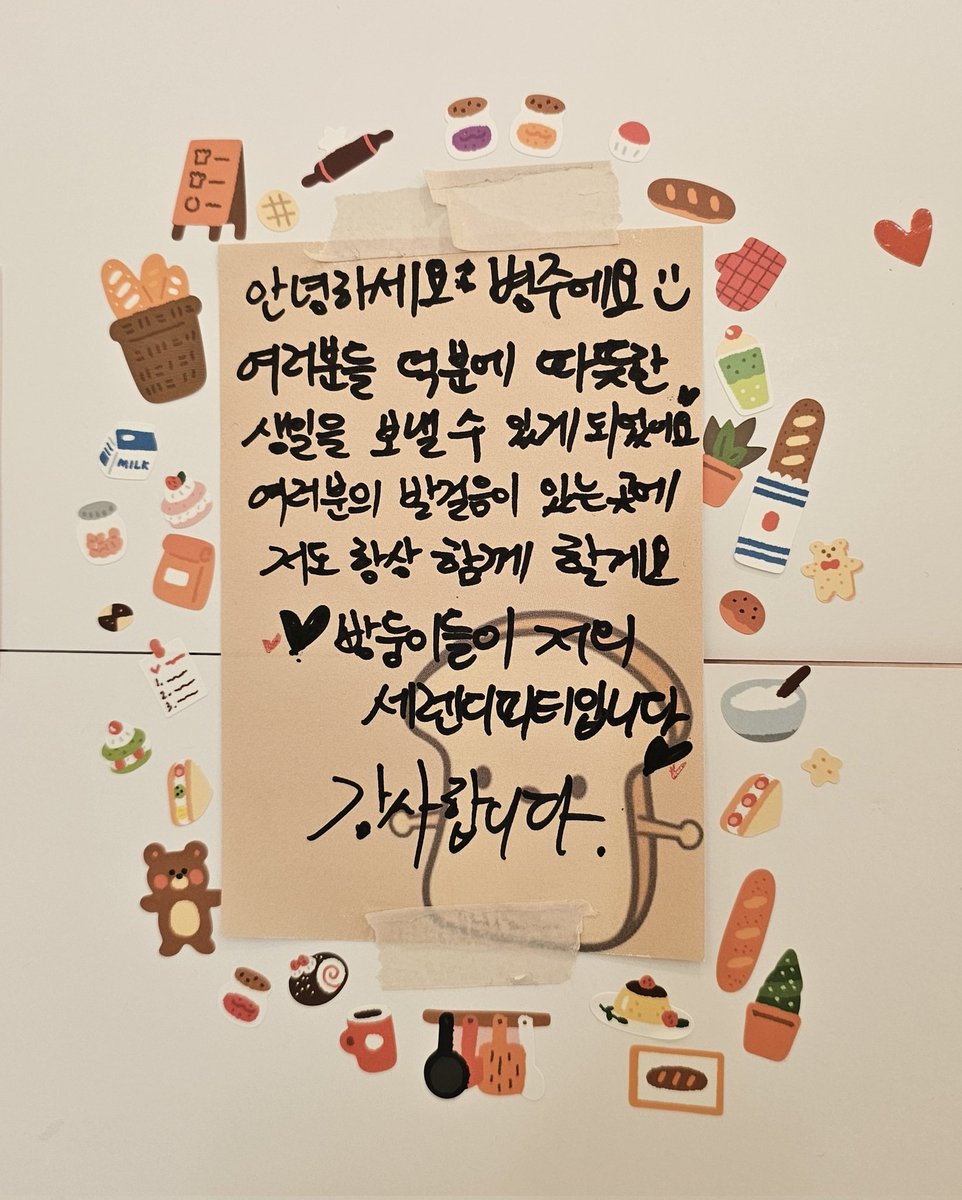 안녕하세요 병주에요 :)
여러분들 덕분에 따뜻한
생일을 보낼 수 있게 되었어요
여러분의 발걸음이 있는 곳에
저도 항상 함께 할게요
♥ 빵둥이들이 저의
세렌디피티입니다 ♥
감사합니다.
MILK
1.
2.
3.